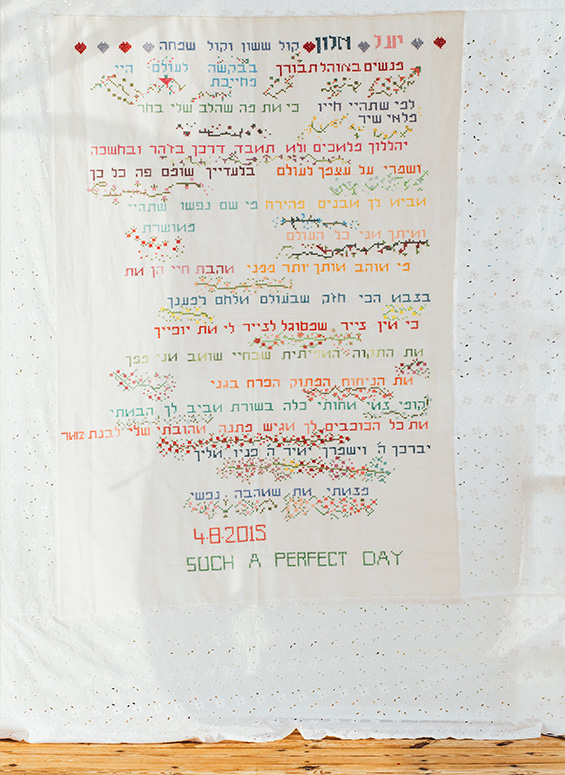 יעל אלון קול ששון וקול שמחה
מנשים באוהל תבורך בבקשה לעולם היי
מחייכת
שתהיי חייו כי את פה שהלב שלי בחר
מלאי שיר
יהללוך מלאכים ולא תאבד דרכך בזוהר ובחשכה
ושמרי על עצמך לעולם בלעדייך שומם פה כל כך
אביא לך אבנים מהירח מי שם נפשו שתהיי
מאושרת
ואיתך אני כל העולם
מי אוהב אותך יותר ממני אהבת חיי הן את
בצבא הכי חזק שבעולם אלחם למענך
כי אין צייר שמסוגל לצייר לי את יופייך
את התקוה האמיתית שבחיי שואב אני ממך
את הניחוח המתוק הפרח בגני
קומי צאי אחותי כלה בשורת אביב לך הבאתי
את כל הכוכבים לך אגיש מתנה אהובתי שלי לבנת צואר
יברכך ה' וישמרך יאיר ה' פניו אליך
מצאתי את שאהבה נפשי
4.8.2015
SUCH A PERFECT DAY